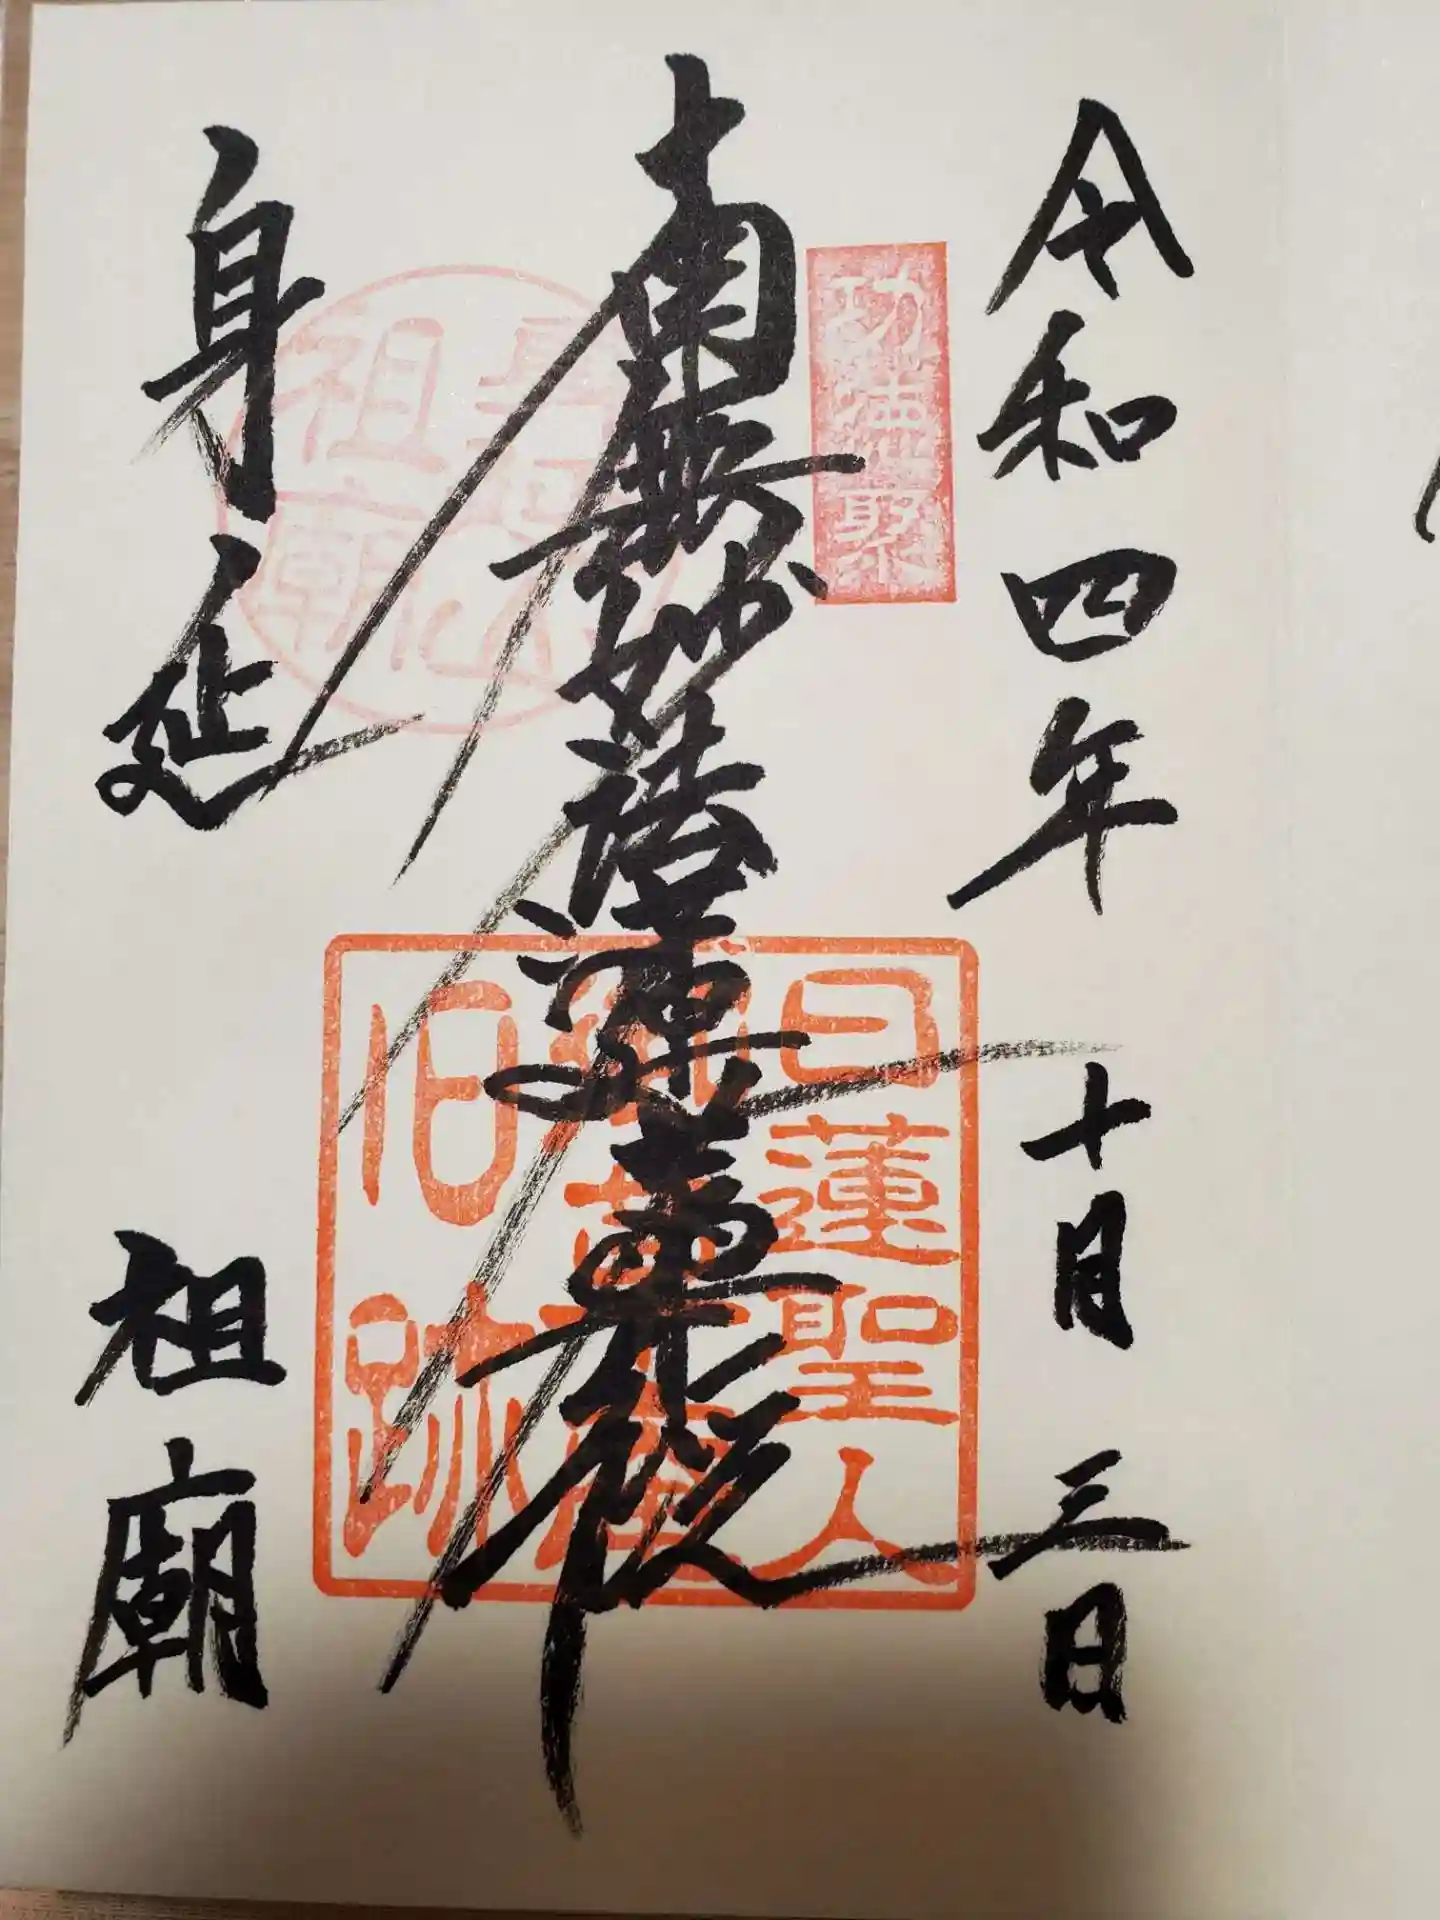 令和四年十月三日
南無妙法蓮華経
日蓮聖人
御草庵
旧跡
身延山
祖廟
身延 祖廟